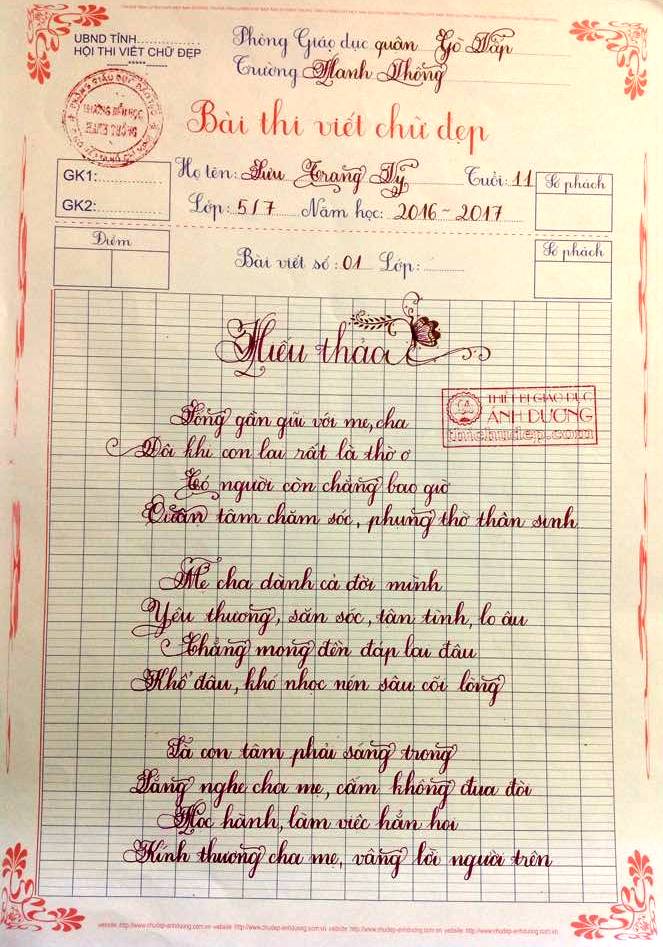 UBND TỈNH................
HỘI THI VIẾT CHỮ ĐẸP
Phòng Giáo dục quận Gò Vấp
Trường Hanh Thông
TRƯỜNG TIỂU HỌC
HANH THÔNG
Bài thi viết chữ đẹp
GK1:................
GK2:................
Họ tên: Lưu Trang Vy Tuổi: 11
Số phách
Lớp: 5/7 Năm học: 2016 - 2017
Điểm
Bài viết số: 01 Lớp:
Số phách
Hiếu thảo
THIẾT BỊ GIÁO DỤC
ÁNH DƯƠNG
thichudep.com
Sống gần gũi với mẹ, cha
Đôi khi con lại rất là thờ ơ
Có người còn chẳng bao giờ
Quan tâm chăm sóc, phụng thờ thân sinh
Mẹ cha dành cả đời mình
Yêu thương, săn sóc, tận tình, lo âu
Chẳng mong đền đáp lại đâu
Khổ đau, khó nhọc nén sâu cõi lòng
Là con tâm phải sáng trong
Lắng nghe cha mẹ, cấm không đua đòi
Học hành, làm việc hẳn hoi
Kính thương cha mẹ, vâng lời người trên
website: http://www.chudep-anhduong.com.vn website: http://www.chudep-anhduong.com.vn website: http://www.chudep-anhduong.com.vn